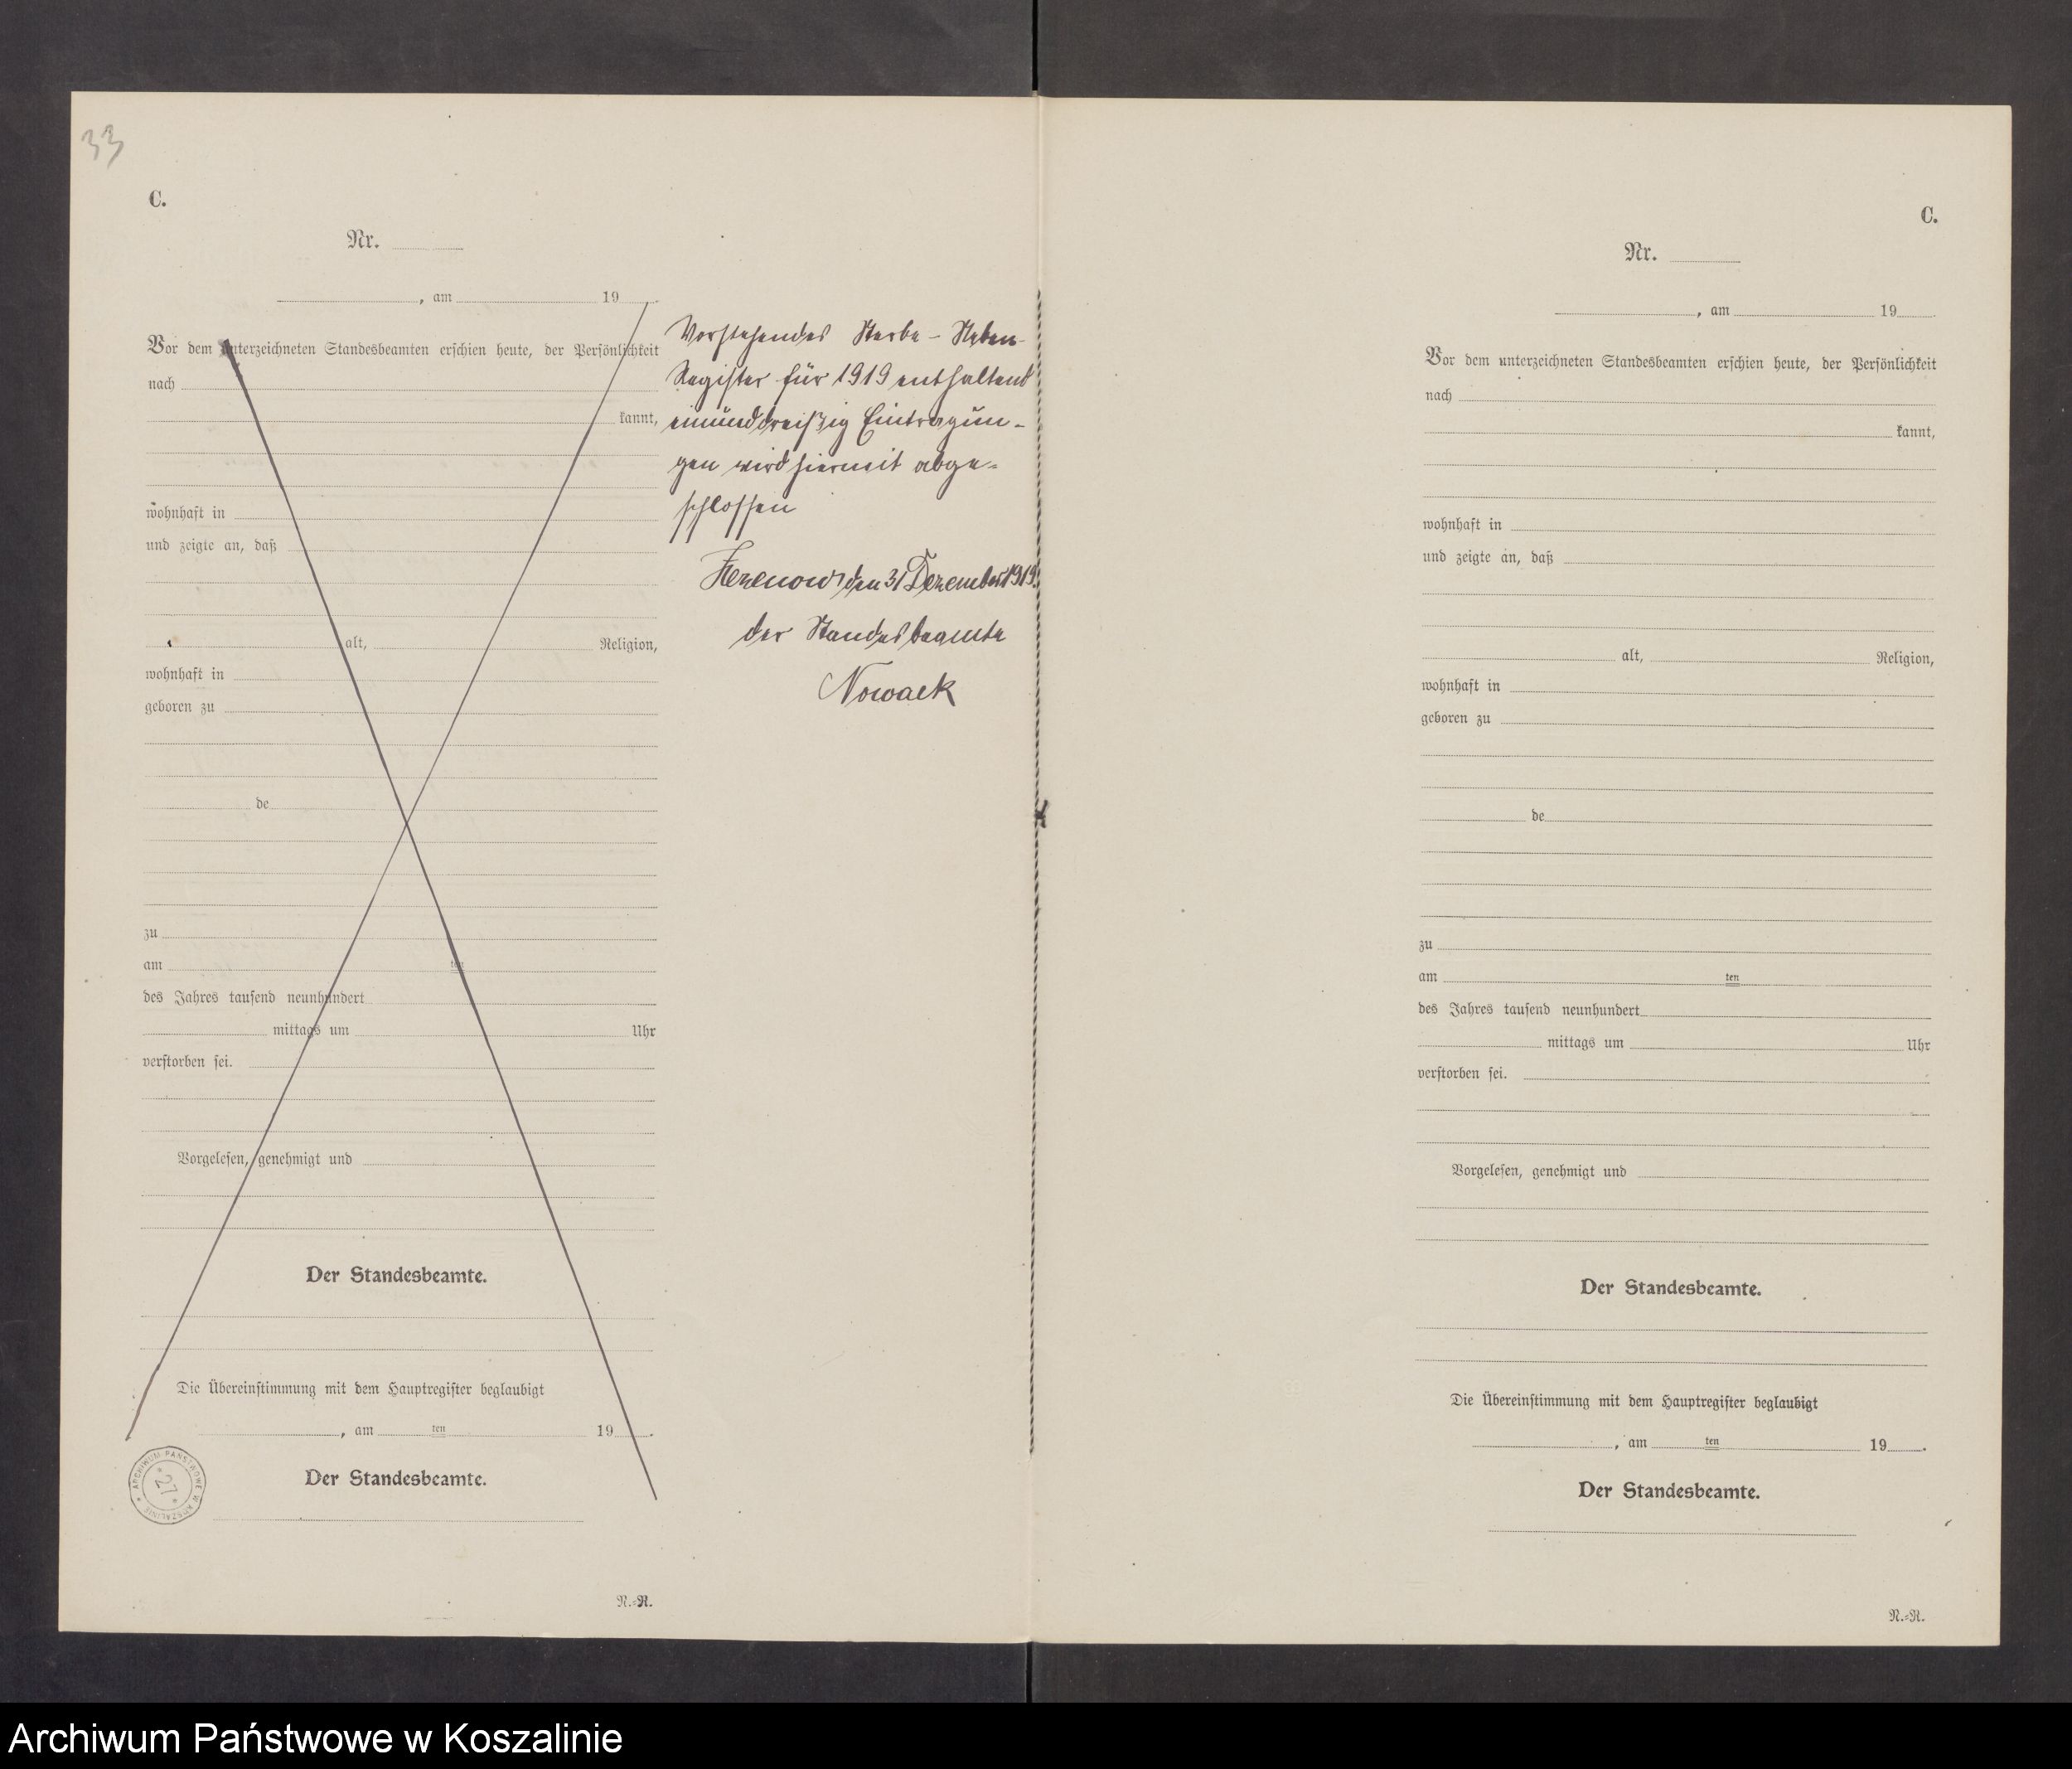 33
C.
Nr.
, am 19 .
Vor dem unterzeichneten Standesbeamten erschien heute, der Persönlichkeit
nach
kannt,
wohnhaft in
und zeigte an, daß
alt, Religion,
wohnhaft in
geboren zu
de
zu
am ten
des Jahres tausend neunhundert
mittags um Uhr
verstorben sei.
Vorgelesen, genehmigt und
Der Standesbeamte.
Die Übereinstimmung mit dem Hauptregister beglaubigt
, am ten 19 .
Der Standesbeamte.
ARCHIWUM PAŃSTWOWE W KOSZALINIE
27
N.-R.
Vorstehendes Sterbe - Neben-
Register für 1919 enthaltend
einunddreißig Eintragun-
gen wird hiermit abge-
schlossen
den 31 Dezember 1919.
der Standesbeamte
Nowack
C.
Nr.
, am 19
Vor dem unterzeichneten Standesbeamten erschien heute, der Persönlichkeit
nach
kannt,
wohnhaft in
und zeigte an, daß
alt, Religion,
wohnhaft in
geboren zu
de
zu
am ten
des Jahres tausend neunhundert
mittags um Uhr
verstorben sei.
Vorgelesen, genehmigt und
Der Standesbeamte.
Die Übereinstimmung mit dem Hauptregister beglaubigt
, am ten 19 .
Der Standesbeamte.
N.-R.
Archiwum Państwowe w Koszalinie